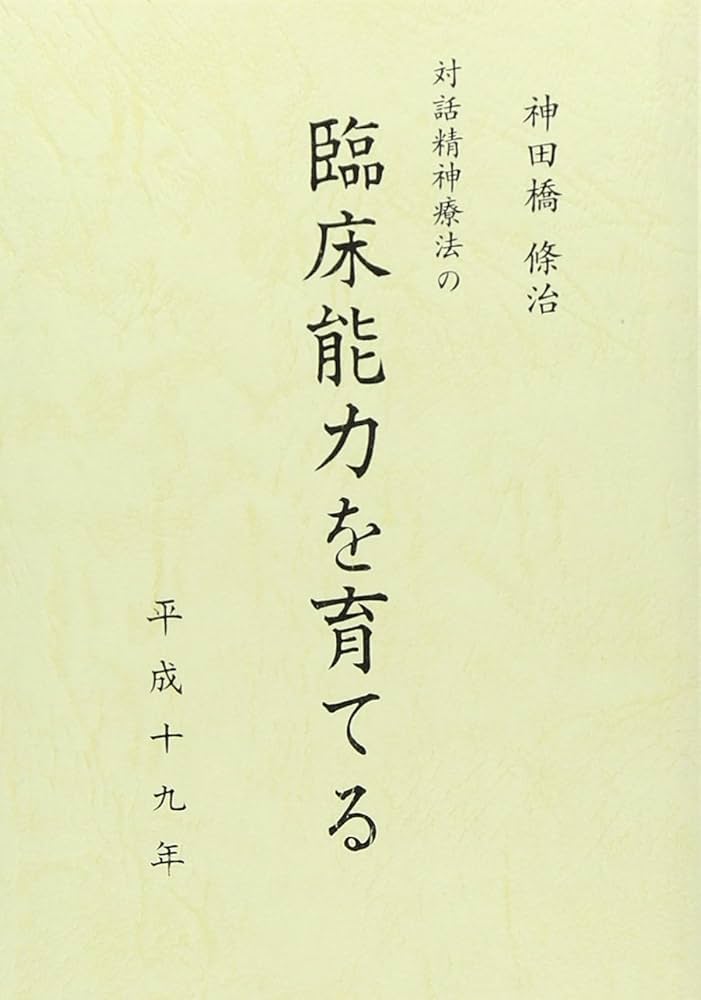 神田橋 條治
対話精神療法の
臨床能力を育てる
平成十九年